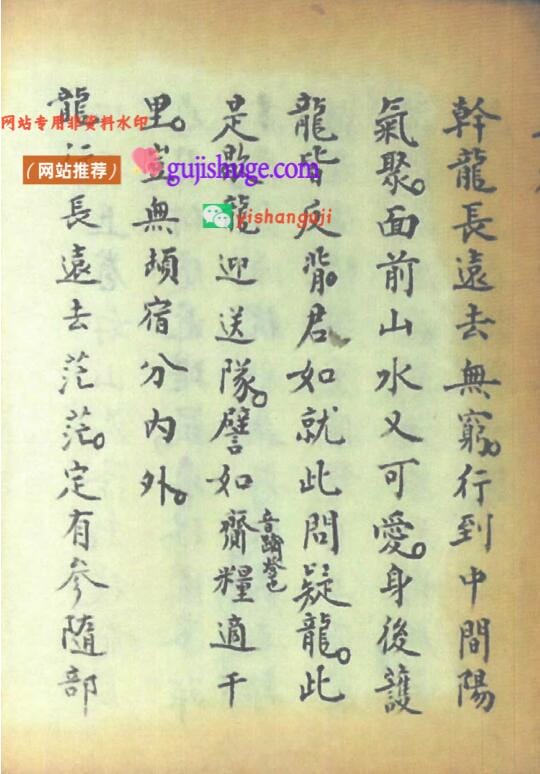 幹龍長遠去無窮。行到中間陽
氣聚。面前山水又可愛。身後護
龍皆反背。君如就此問疑龍。此
是歇龍迎送隊。譬如齎糧適千
里。豈無頓宿分內外。
龍行長遠去茫茫。定有參隨部
网站专用非资料水印
（网站推荐）
gujishuge.com
yishanguji